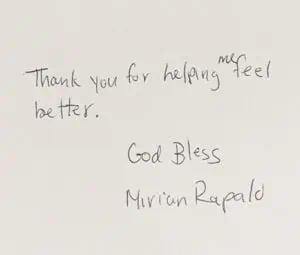 Thank you for helping me feel
better.
God Bless
Mirian Rapalo